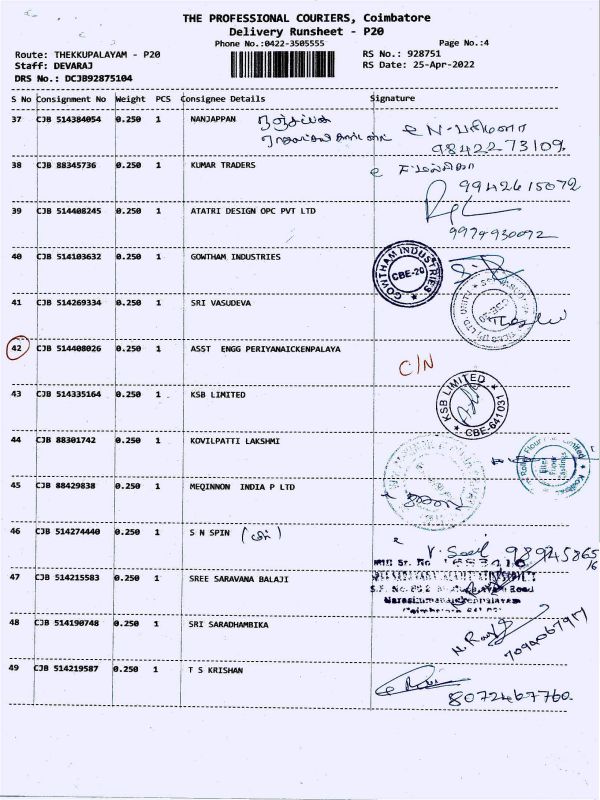 THE PROFESSIONAL COURIERS, Coimbatore
Delivery Runsheet - P20
Phone No.:0422-3505555
Page No.:4
Route: THEKKUPALAYAM - P20
RS No.: 928751
Staff: DEVARAJ
RS Date: 25-Apr-2022
DRS No.: DCJB92875104
S No Consignment No Weight PCS Consignee Details Signature
37 CJB 514384054 0.250 1 NANJAPPAN
9842273109
38 CJB 88345736 0.250 1 KUMAR TRADERS
9942615072
39 CJB 514408245 0.250 1 ATATRI DESIGN OPC PVT LTD
9974930092
40 CJB 514103632 0.250 1 GOWTHAM INDUSTRIES
GOWTHAM INDUSTRIES
CBE-20
41 CJB 514269334 0.250 1 SRI VASUDEVA
42 CJB 514408026 0.250 1 ASST ENGG PERIYANAICKENPALAYA
C/N
43 CJB 514335164 0.250 1 KSB LIMITED
KSB LIMITED
CBE-641031
44 CJB 88301742 0.250 1 KOVILPATTI LAKSHMI
45 CJB 88429838 0.250 1 MEQINNON INDIA P LTD
46 CJB 514274440 0.250 1 S N SPIN
9894586516
47 CJB 514215583 0.250 1 SREE SARAVANA BALAJI
48 CJB 514190748 0.250 1 SRI SARADHAMBIKA
49 CJB 514219587 0.250 1 T S KRISHAN
8072467760